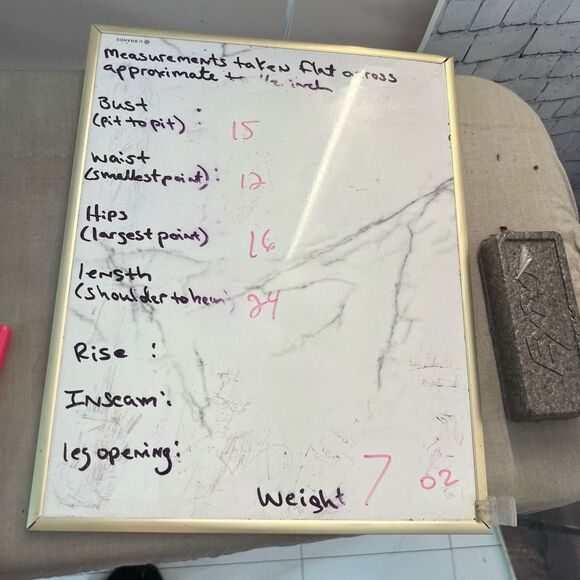 U BRANDS
measurements taken flat across
approximate to 1/2 inch
Bust
(pit to pit) : 15
waist
(smallest point) : 12
Hips
(largest point) 16
length
(shoulder to hem) 24
Rise :
Inseam :
leg opening :
Weight 7 oz